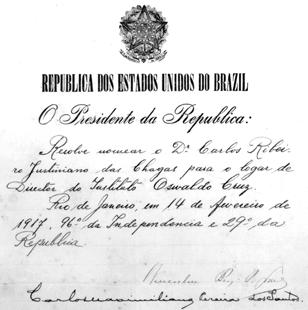 REPUBLICA DOS ESTADOS UNIDOS DO BRAZIL
O Presidente da Republica:
Resolve nomear o Dr. Carlos Ribei-
ro Justiniano das Chagas para o logar de
Director do Instituto Oswaldo Cruz.
Rio de Janeiro, em 14 de fevereiro de
1917, 96º da Independencia e 29º da
Republica.
Carlos Maximiliano Pereira dos Santos